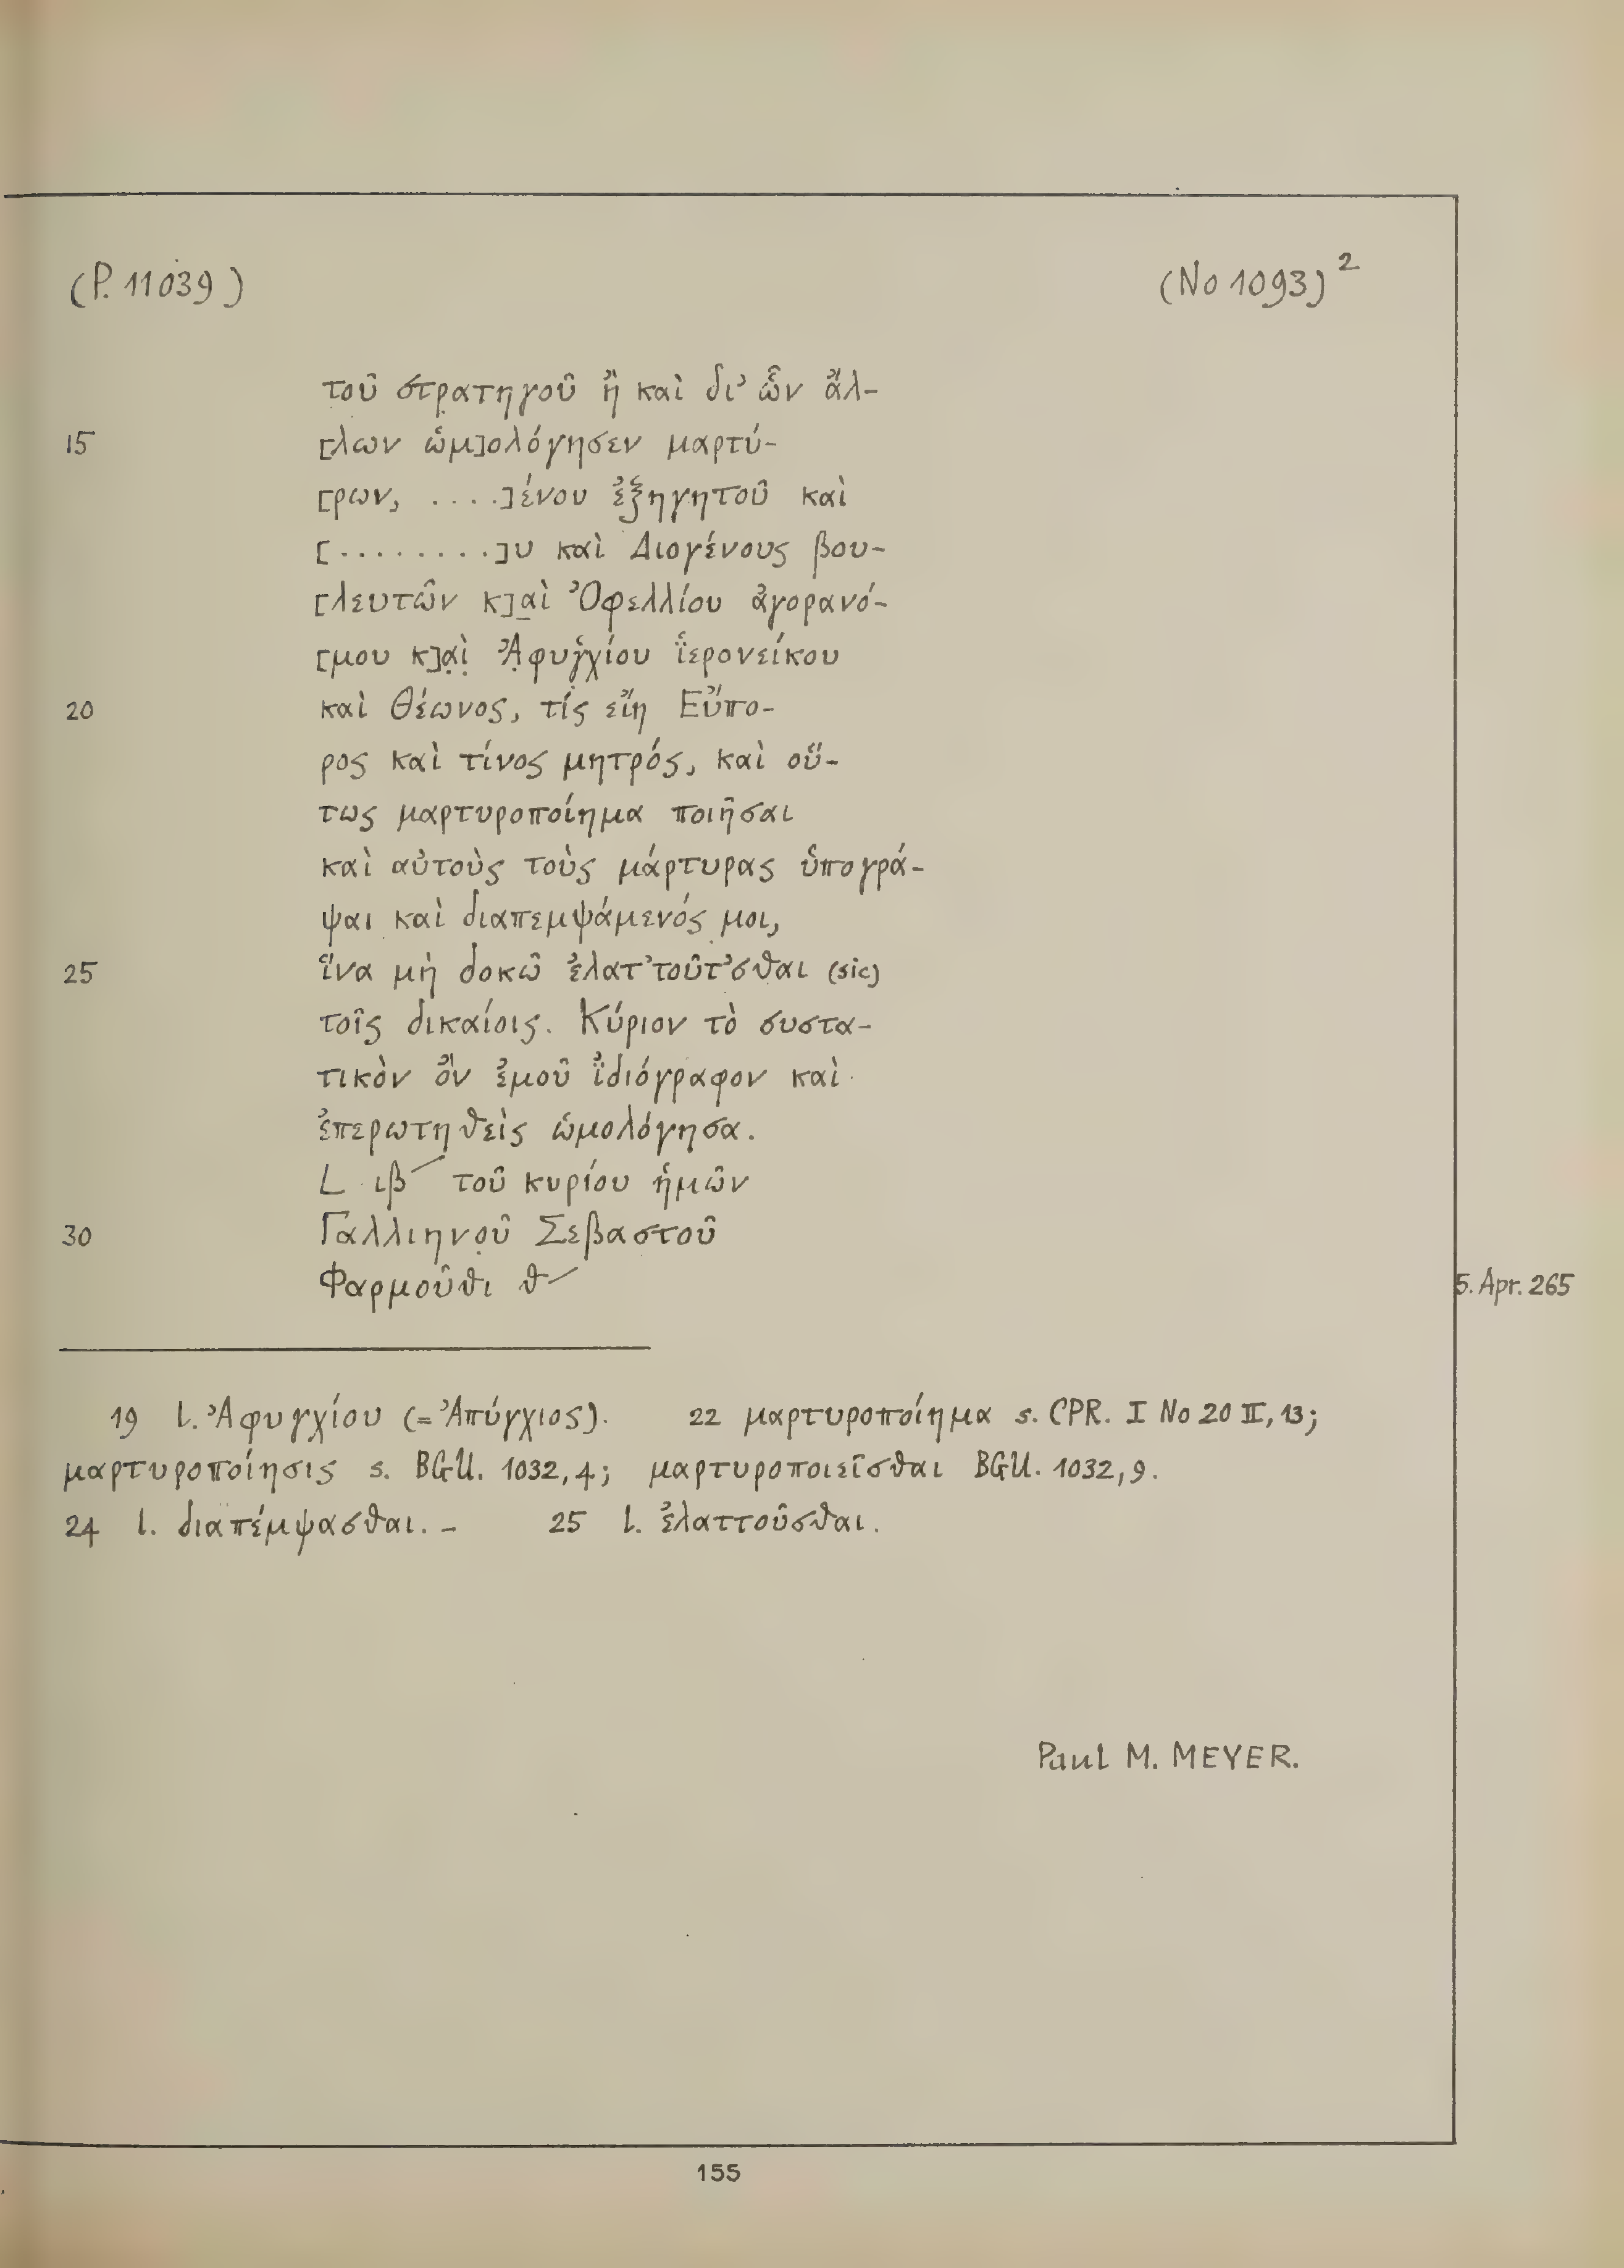 (P. 11039) (No 1093)²
τοῦ στρατηγοῦ ἢ καὶ δι' ὧν ἄλ-
15 [λων ὡμ]ολόγησεν μαρτύ-
[ρων, ....]ένου ἐξηγητοῦ καὶ
[.........]υ καὶ Διογένους βου-
[λευτῶν κ]α̣ὶ Ὀφελλίου ἀγορανό-
[μου κ]α̣ὶ̣ Ἀ̣φυγ̓χ̣ίου ἱ̈ερονείκου
20 καὶ Θέωνος, τίς εἴη Εὔπο-
ρος καὶ τίνος μητρός, καὶ οὕ-
τως μαρτυροποίημα ποιῆσαι
καὶ αὐτοὺς τοὺς μάρτυρας ὑπογρά-
ψαι καὶ διαπεμψάμενός μοι,
25 ἵνα μὴ δοκῶ ἐλατ'τοῦτ'σθαι (sic)
τοῖς δικαίοις. Κύριον τὸ συστα-
τικὸν ὂν ἐμοῦ ἰ̈διόγραφον καὶ
ἐπερωτηθεὶς ὡμολόγησα.
L ιβ/ τοῦ κυρίου ἡμῶν
30 Γαλλιην̣οῦ Σεβαστοῦ
Φαρμοῦθι θ/ 5. Apr. 265
19 l. Ἀφυγχίου (= Ἀπύγχιος). 22 μαρτυροποίημα s. CPR. I No 20 II, 13;
μαρτυροποίησις s. BGU. 1032, 4; μαρτυροποιεῖσθαι BGU. 1032, 9.
24 l. διαπέμψασθαι. – 25 l. ἐλαττοῦσθαι.
Paul M. MEYER.
155